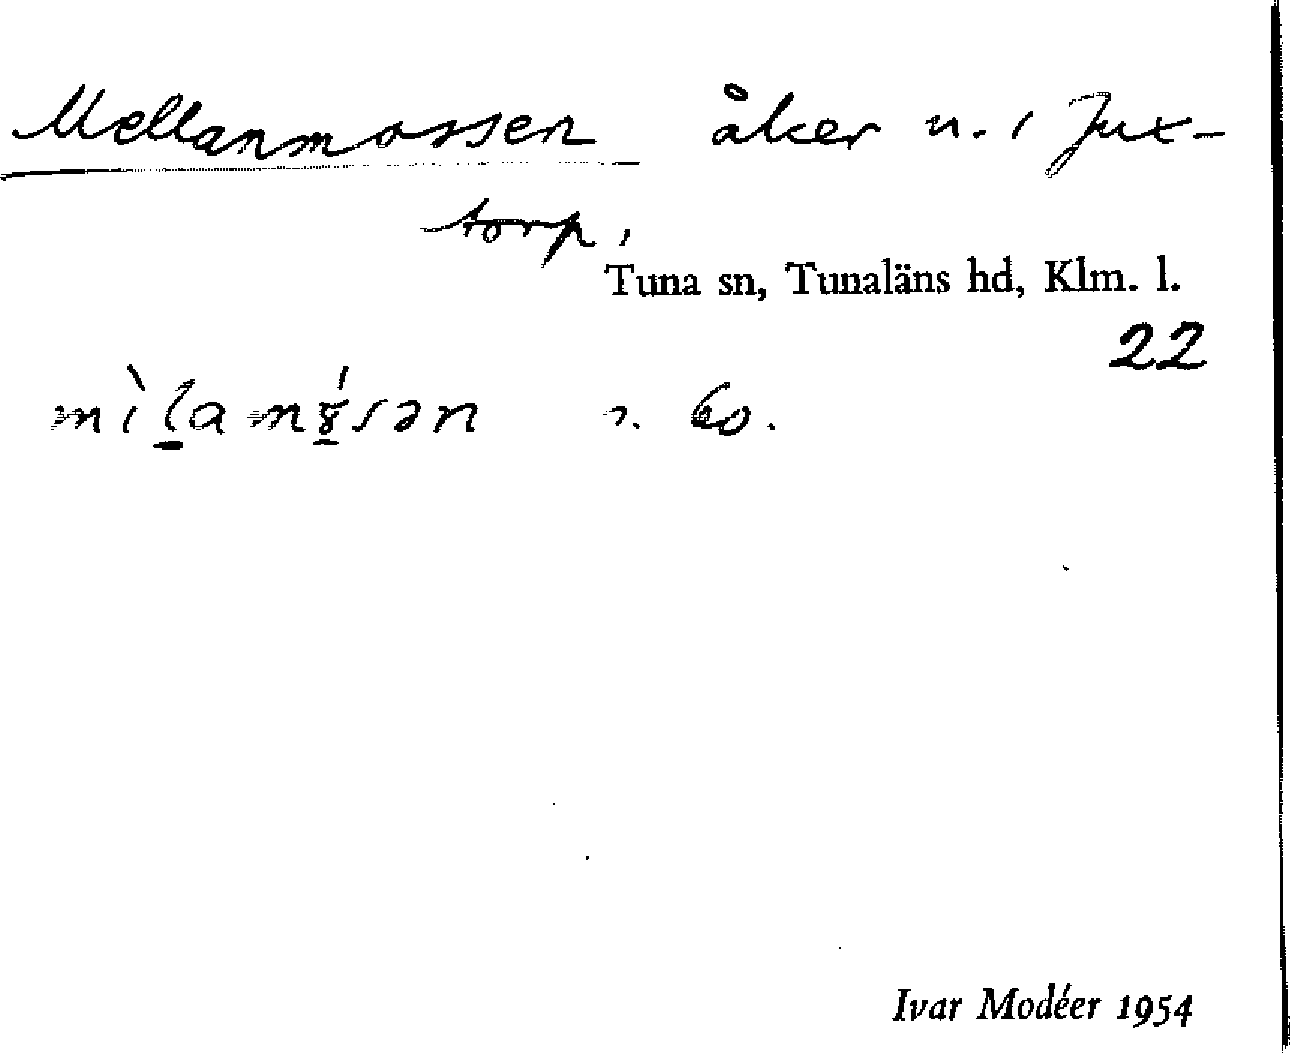 Mellanmossen åker n. i Jux-
torp,
Tuna sn, Tunaläns hd, Klm. l.
22
mìlamɤ́sən n. 60.
Ivar Modéer 1954